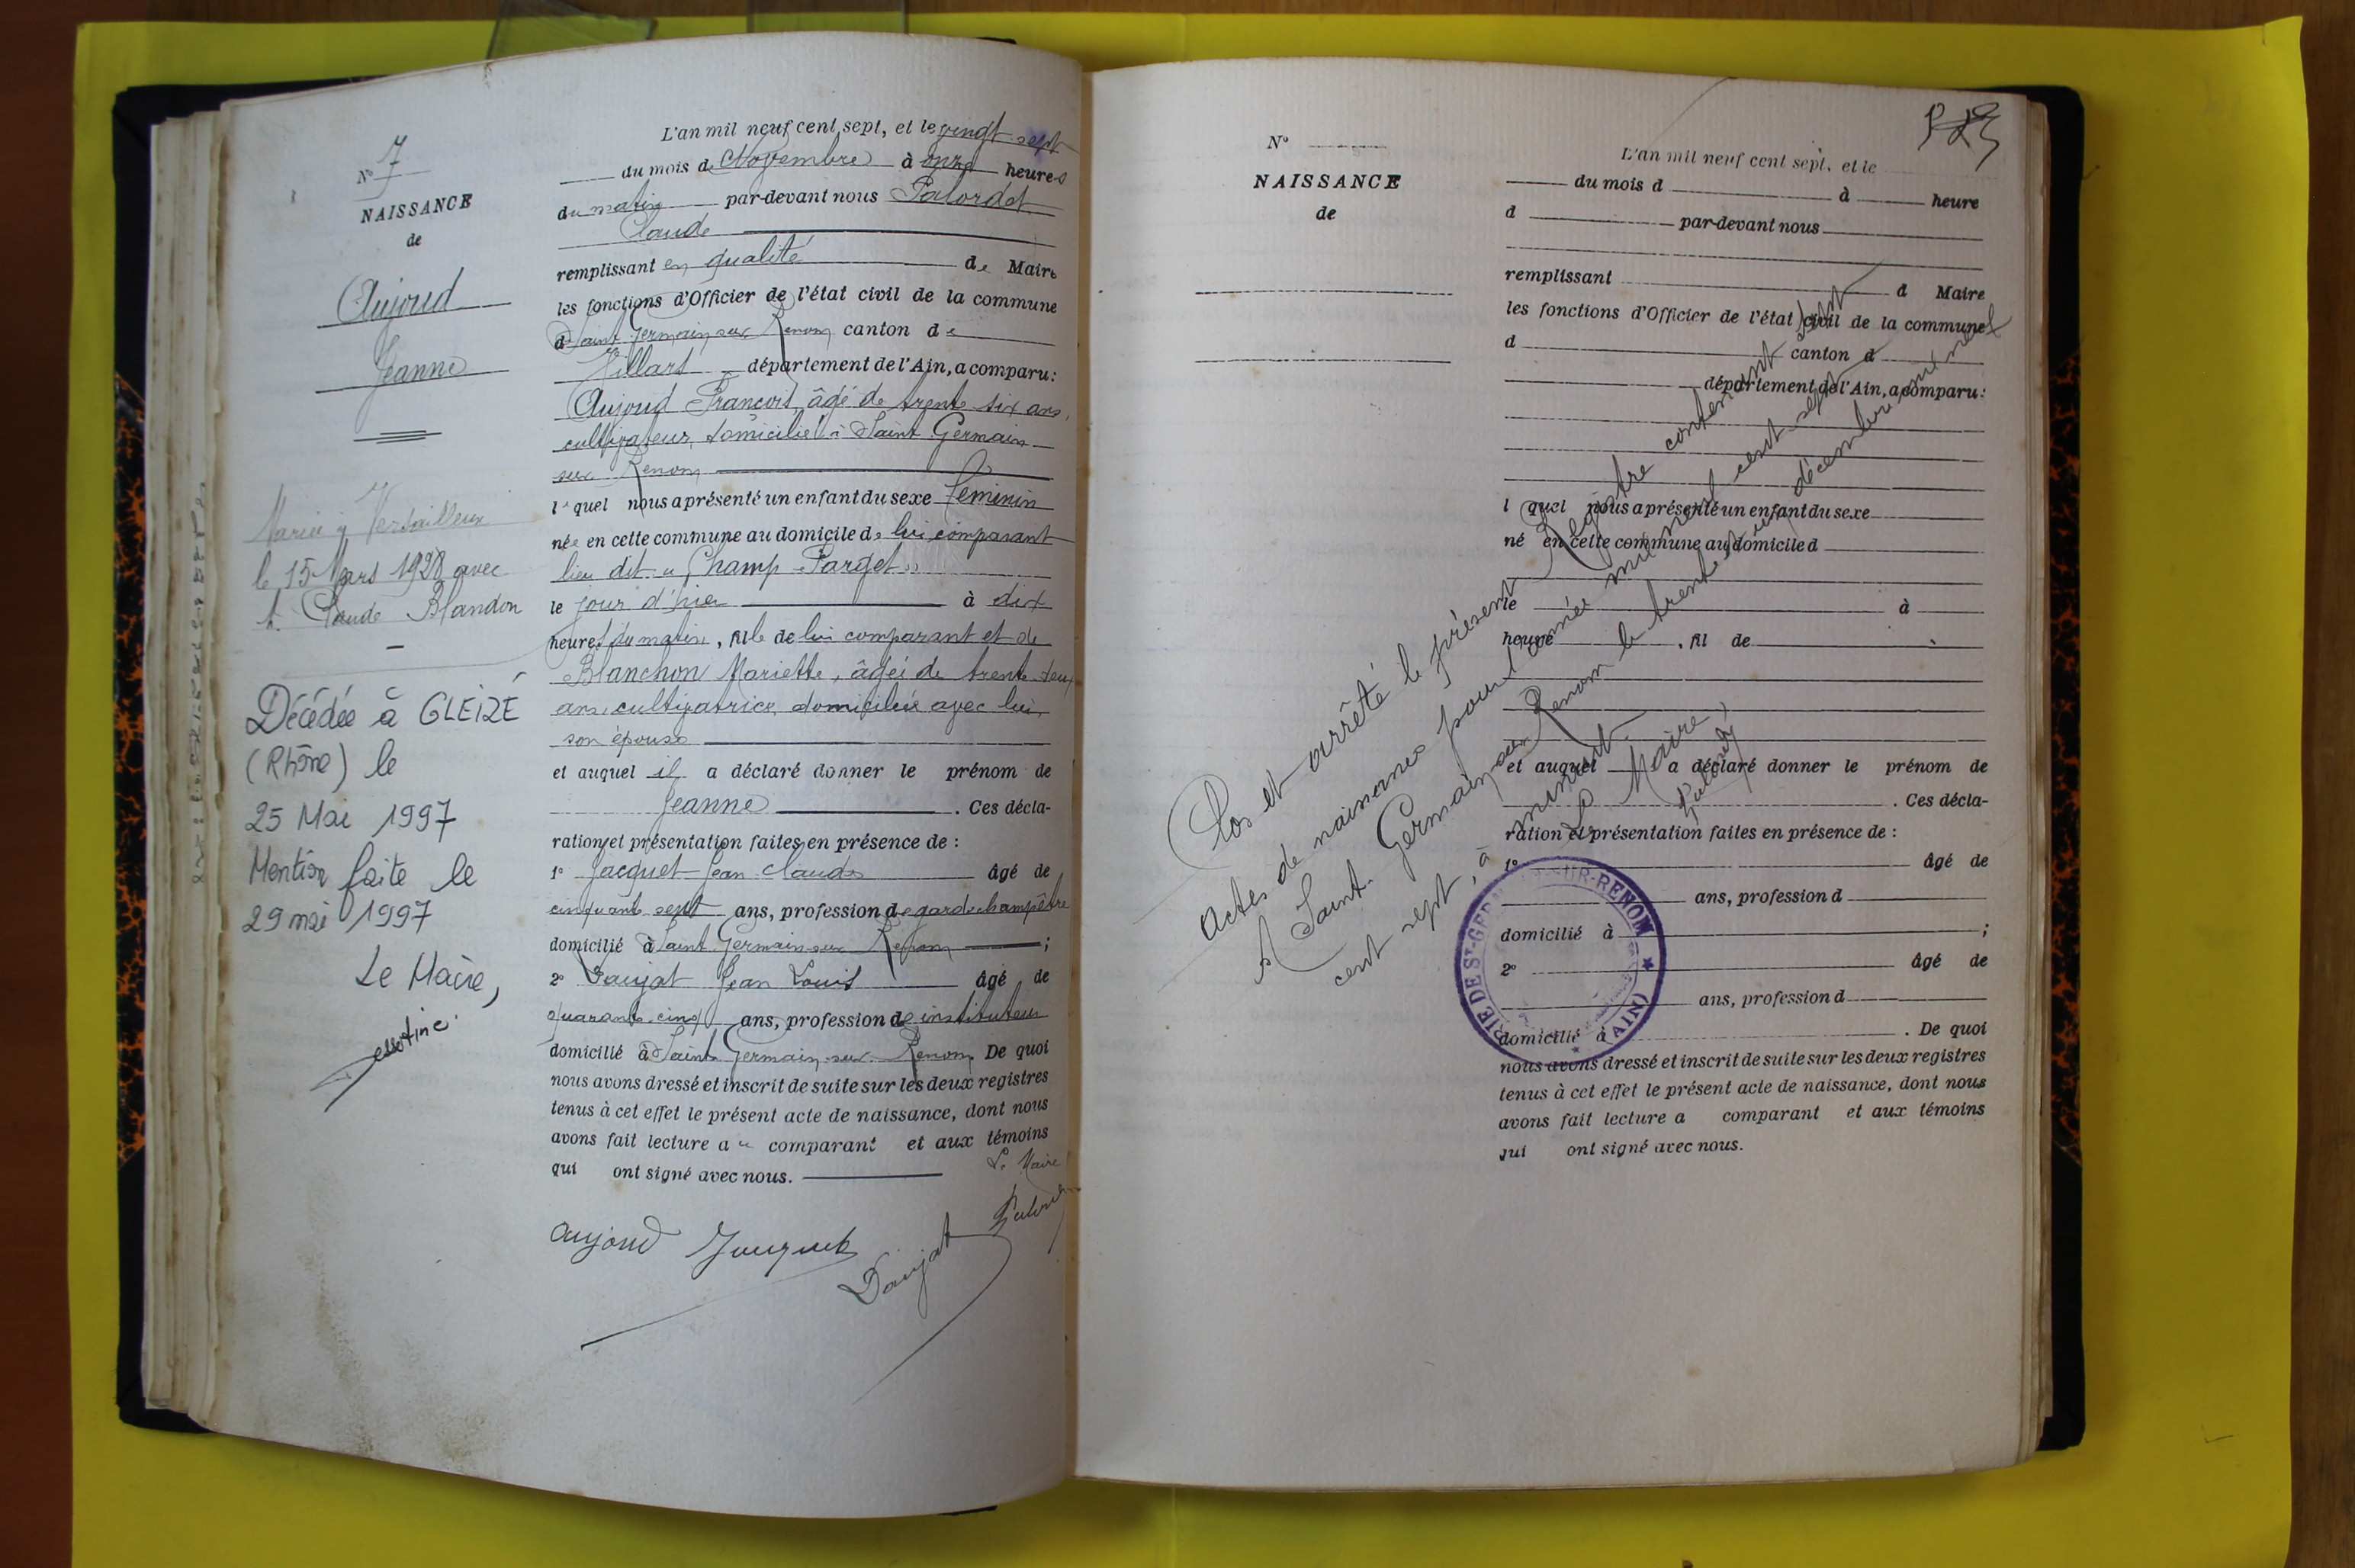 N° 7
NAISSANCE
de
Aujoud
Jeanne
Mariée à Versailleux
le 15 Mars 1928 avec
Claude Blandon
Décédée à GLEIZÉ
(Rhône) le
25 Mai 1997
Mention faite le
29 mai 1997
Le Maire,
L'an mil neuf cent sept, et le vingt-sept
du mois de Novembre à onze heures
du matin par-devant nous Palordet
Claude
remplissant en qualité de Maire
les fonctions d'Officier de l'état civil de la commune
de Saint Germain sur Renom canton de
Villars département de l'Ain, a comparu:
Aujoud François, âgé de trente six ans,
cultivateur, domicilié à Saint Germain
sur Renom
lequel nous a présenté un enfant du sexe féminin
née en cette commune au domicile de lui comparant
lieu dit « Champ Parget »
le jour d'hier à dix
heures du matin, fille de lui comparant et de
Blanchon Mariette, âgée de trente-deux
ans, cultivatrice, domiciliée avec lui,
son épouse
et auquel il a déclaré donner le prénom de
Jeanne. Ces décla-
ration et présentation faites en présence de :
1° Jacquet Jean Claude âgé de
cinquante sept ans, profession de garde champêtre
domicilié à Saint Germain sur Renom ;
2° Daujat Jean Louis âgé de
quarante-cinq ans, profession de instituteur
domicilié à Saint Germain-sur-Renom. De quoi
nous avons dressé et inscrit de suite sur les deux registres
tenus à cet effet le présent acte de naissance, dont nous
avons fait lecture au comparant et aux témoins
qui ont signé avec nous.
Le Maire
Aujoud Jacquet Daujat Palordet
N°
NAISSANCE
de
L'an mil neuf cent sept, et le
du mois d à heure
d par-devant nous
remplissant d Maire
les fonctions d'Officier de l'état civil de la commune
d canton d
département de l'Ain, a comparu:
l quel nous a présenté un enfant du sexe
né en cette commune au domicile d
le à
heure , fil de
et auquel a déclaré donner le prénom de
. Ces décla-
ration et présentation faites en présence de :
1° âgé de
ans, profession d
domicilié à ;
2° âgé de
ans, profession d
domicilié à . De quoi
nous avons dressé et inscrit de suite sur les deux registres
tenus à cet effet le présent acte de naissance, dont nous
avons fait lecture a comparant et aux témoins
qui ont signé avec nous.
Clos et arrêté le présent Registre contenant sept
actes de naissances pour l'année mil neuf cent sept
A Saint-Germain-sur-Renom le trente et un décembre mil neuf
cent sept, à minuit.
Le Maire,
Palordet